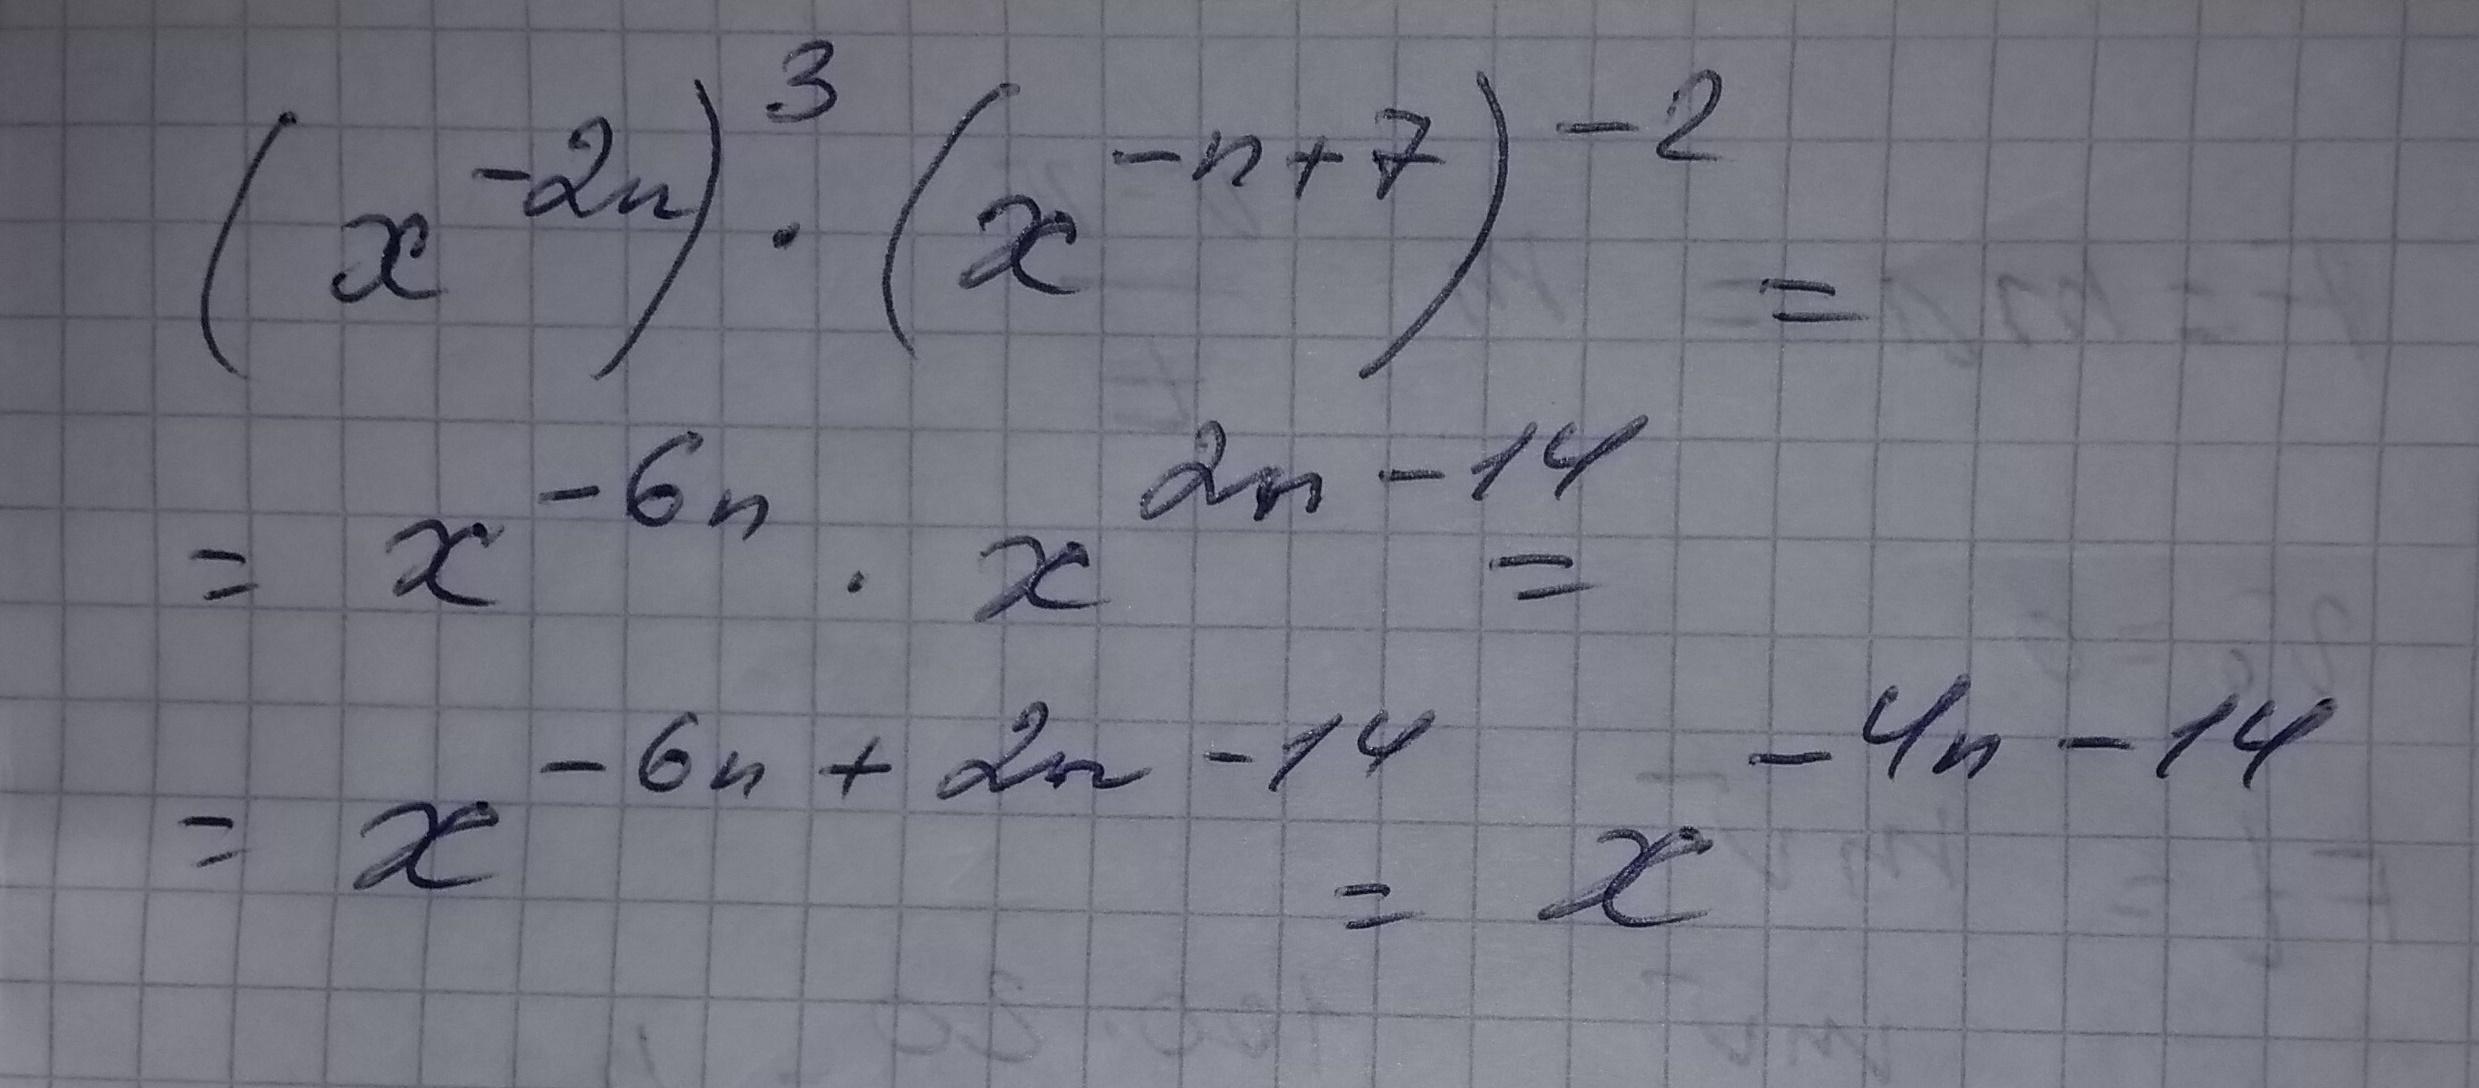 (x^{-2n})^3 · (x^{-n+7})^{-2} =
= x^{-6n} · x^{2n-14} =
= x^{-6n+2n-14} = x^{-4n-14}